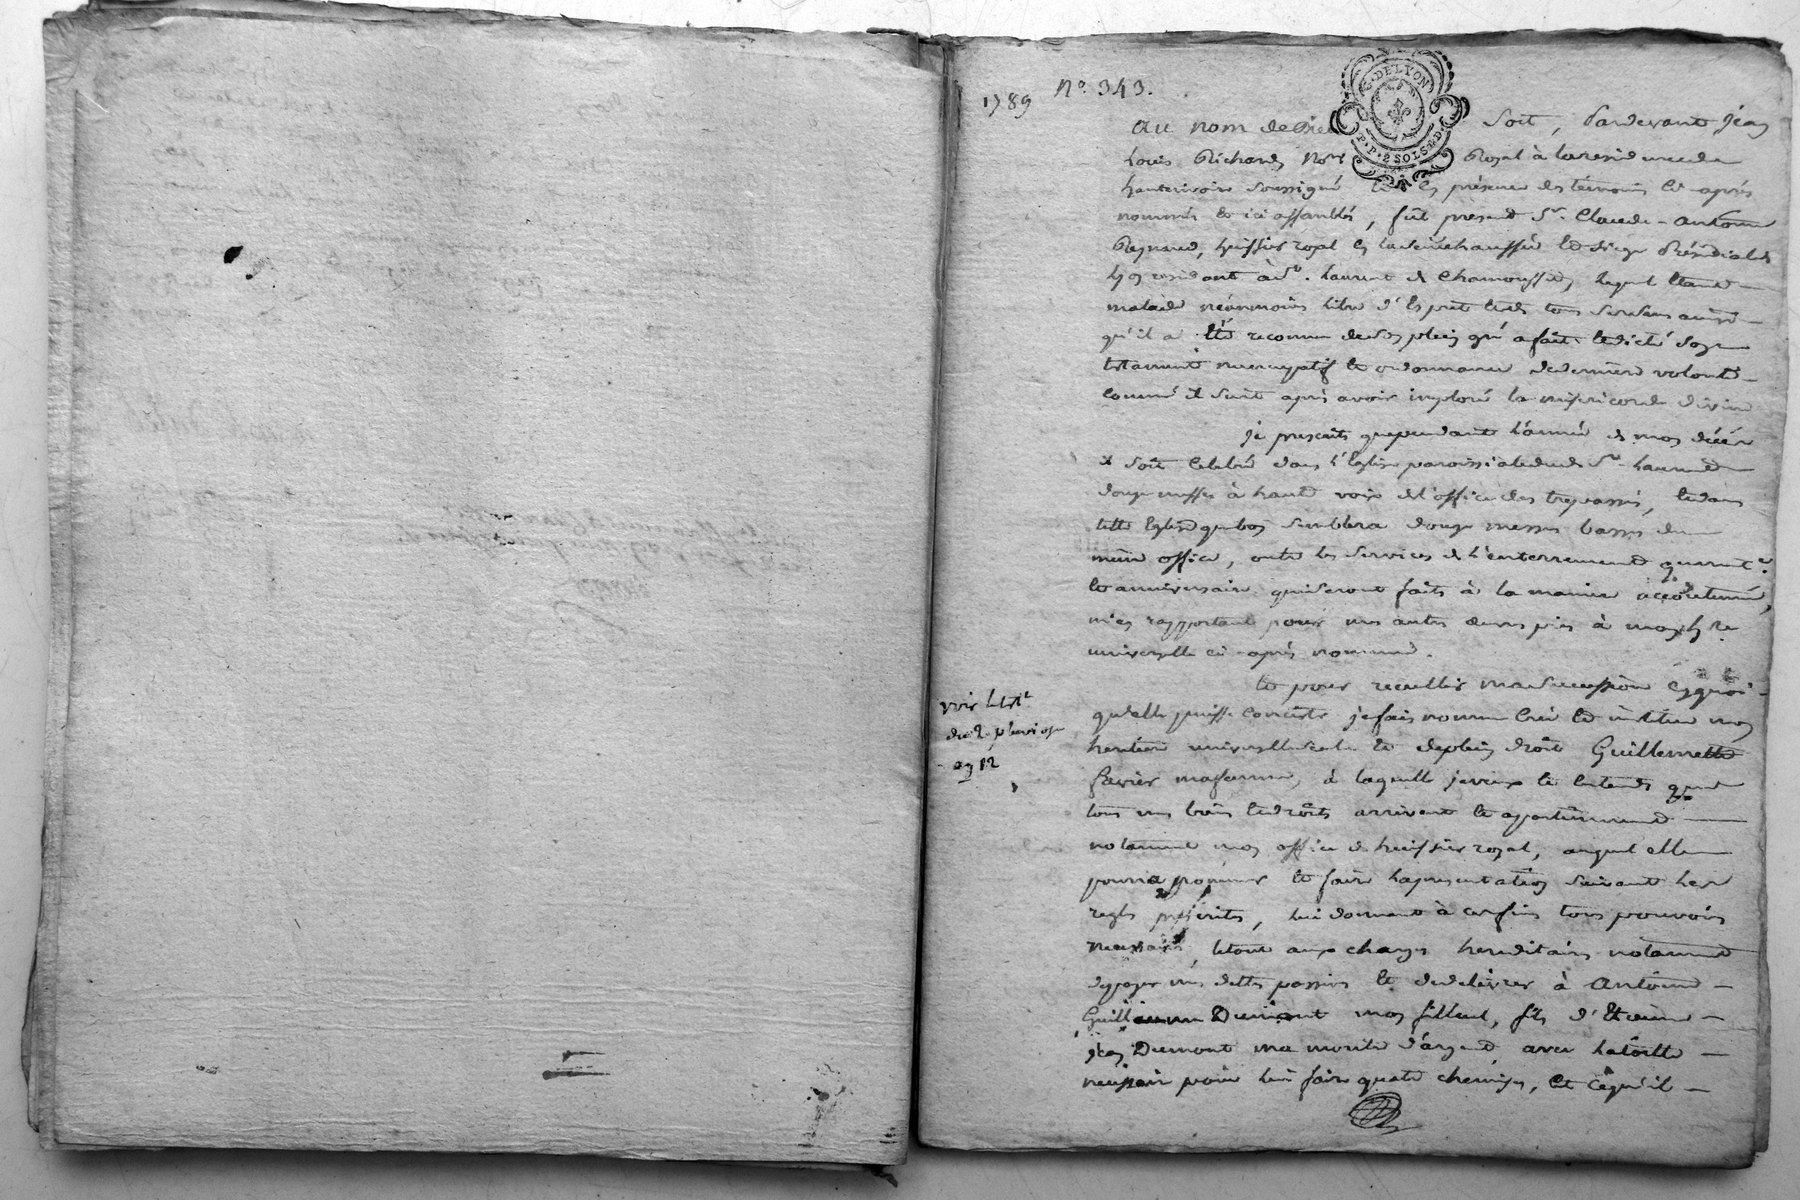 1789 No. 343.
G. DE LYON
P.P. 2 SOLS 8 D.
Au nom de Dieu soit, Pardevant Jean
Louis Richard Nore Royal à la residence de
hauterivoire soussigné et en présence des témoins cy après
nommés et ici assemblés, fût present Sr. Claude-Antoine
huissier royal en la sénéchaussée et siege Présidial de
Lyon residant à St. Laurent de Chamousset, lequel étant
malade néanmoins libre d'Esprit et de tous ses sens ainsi
qu'il a été reconnu de son plein gré a fait et dicté son
testament nuncupatif et ordonnance de derniere volonté
comme il suit après avoir imploré la misericorde divine
je prescrits que pendant l'année de mon décès
il soit celebré dans l'Eglise paroissiale dud. St. Laurent
douze messes à haute voix de l'office des trepassés, et dans
telle Eglise que bon semblera douze messes basses du
même office, outre les services de l'enterrement quarante.
et anniversaire qui seront faits à la maniere accoutumée,
m'en rapportant pour mes autres œuvres pies à mon h.re
universelle ci-après nommée.
et pour recuellir ma succession en quoi-
qu'elle puisse consister je fais nomme crée et institue mon
heritiere universelle seule et de plein droit Guillemette
Favier ma femme, à laquelle je veux et entends que
tous mes biens et droits arrivent et appartiennent
notamment mon office d'huissier royal, auquel elle
pourra nommer et faire la presentation suivant les
regles prescrites, lui donnant à ces fins tous pouvoirs
necessaires, le tout aux charges hereditaires notamment
de payer mes dettes passives et de delivrer à Antoine-
Guillaume Dumont mon filleul, fils d'Etienne-
Jean Dumont ma montre d'argent, avec la toille
necessaire pour lui faire quatre chemises, et ce qu'il
voir le tt
du 2 pluviose
an 12